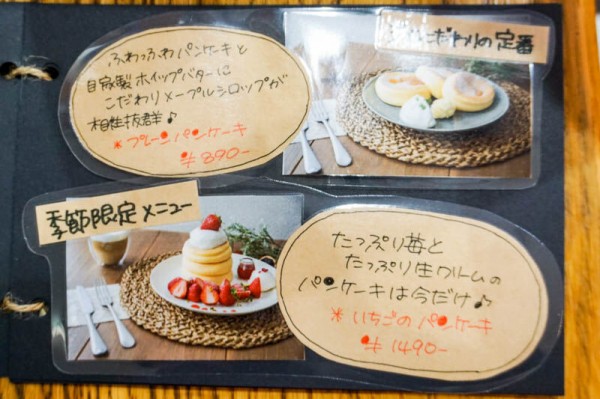 ふわっふわパンケーキと
自家製ホイップバターに
こだわりメープルシロップが
相性抜群♪
*プレーンパンケーキ
¥890-
こだわりの定番
季節限定メニュー
たっぷり苺と
たっぷり生クリームの
パンケーキは今だけ♪
* いちごのパンケーキ
¥1490-